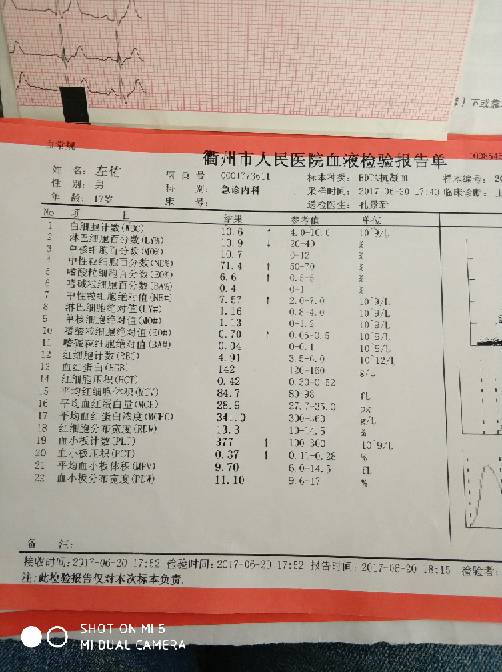 衢州市人民医院血液检验报告单
姓 名: 左佑 病员号 标本种类: EDTA抗凝血 标本编号: 20
性 别: 男 科 别: 急诊内科 采样时间: 2017-06-20 17:40 临床诊断:
年 龄: 17岁 床 号: 送检医生:
No 项 目 结果 参考值 单位
1 白细胞计数(WBC) 10.6 ↑ 4.0-10.0 10^9/L
2 淋巴细胞百分数(LY%) 10.9 ↓ 20-40 %
3 单核细胞百分数(MO%) 10.7 3-12 %
4 中性粒细胞百分数(NE%) 71.4 ↑ 50-70 %
5 嗜酸粒细胞百分数(EO%) 6.6 ↑ %
6 嗜碱粒细胞百分数(BA%) 0.4 0-1 %
7 中性粒细胞绝对值(NE#) 7.57 ↑ 2.0-7.0 10^9/L
8 淋巴细胞绝对值(LY#) 1.16 0.8-4.0 10^9/L
9 单核细胞绝对值(MO#) 1.13 0-1.2 10^9/L
10 嗜酸细胞绝对值(EO#) 0.70 ↑ 10^9/L
11 嗜碱细胞绝对值(BA#) 0.04 0-0.1 10^9/L
12 红细胞计数(RBC) 4.91 10^12/L
13 血红蛋白(HGB) 142 120-160 g/L
14 红细胞压积(HCT) 0.42
15 平均红细胞体积(MCV) 84.7 80-98 fL
16 平均血红蛋白量(MCH) 28.9 pg
17 平均血红蛋白浓度(MCHC) g/L
18 红细胞分布宽度(RDW) 13.3 10-14.5 %
19 血小板计数(PLT) 377 ↑ 100-300 10^9/L
20 血小板压积(PCT) 0.37 ↑ 0.11-0.28 %
21 平均血小板体积(MPV) 9.70 6.0-14.5 fL
22 血小板分布宽度(PDW) 11.10 9.6-17 %
备 注:
接收时间:2017-06-20 17:52 检验时间:2017-06-20 17:52 报告时间:2017-06-20 18:15 检验者:
注:此检验报告仅对本次标本负责.
SHOT ON MI 5
MI DUAL CAMERA